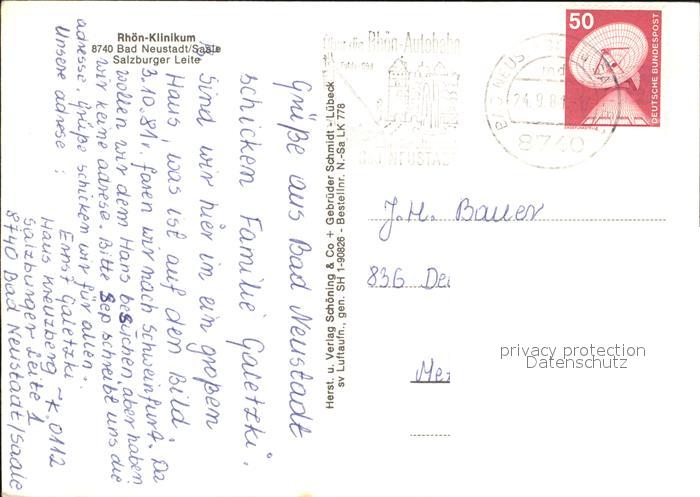 Rhön-Klinikum
8740 Bad Neustadt/Saale
Salzburger Leite
Grüße aus Bad Neustadt
schicken Familie Galetzki.
Sind wir hier in ein großen
Haus, was ist auf den Bild
3.10.81 r. faren wir nach Schweinfurt. Da
wollen wir dem Hans besüchen, aber haben
wir keine adrese. Bitte Sep schreibt uns die
adresse. Grüße schicken wir für allen.
Unsere adrese:
Ernst Galetzki
Haus Kreuzberg - K. 0112
Salzburger Leite 1
8740 Bad Neustadt/Saale
Herst. u. Verlag Schöning & Co + Gebrüder Schmidt - Lübeck
sv Luftaufn., gen. SH 1-90826 - Bestellnr. N.-Sa LK 778
über die Rhön-Autobahn
BAD NEUSTADT
BAD NEUS
24.9.8
8740
50
DEUTSCHE BUNDESPOST
ERDEFUNKSTELLE
J.H. Bauer
836 De
Me
privacy protection
Datenschutz